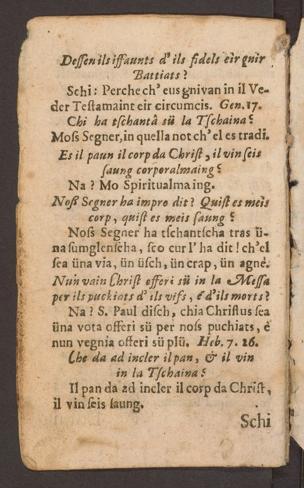 Dessen ils iffaunts d' ils fidels eir gnir
Battiats?
Schi: Perche ch' eus gnivan in il Ve-
der Testamaint eir circumcis. Gen. 17.
Chi ha tschantà sü la Tschaina?
Moss Segner, in quella not ch' el es tradi.
Es il paun il corp da Christ, il vin seis
saung corporalmaing?
Na? Mo Spiritualmaing.
Noss Segner ha impro dit? Quist es meis
corp, quist es meis saung?
Noss Segner ha tschantscha tras ü-
na sumglenscha, sco cur l' ha dit! ch'el
sea üna via, ün üsch, ün crap, ün agnè.
Nun vain Christ offeri sü in la Messa
per ils puckiots d' ils vifs, è d'ils morts?
Na? S. Paul disch, chia Christus sea
üna vota offeri sü per noss puchiats, è
nun vegnia offeri sü plü. Heb. 7. 26.
Che da ad incler il pan, & il vin
in la Tschaina?
Il pan da ad incler il corp da Christ,
il vin seis saung.
Schi